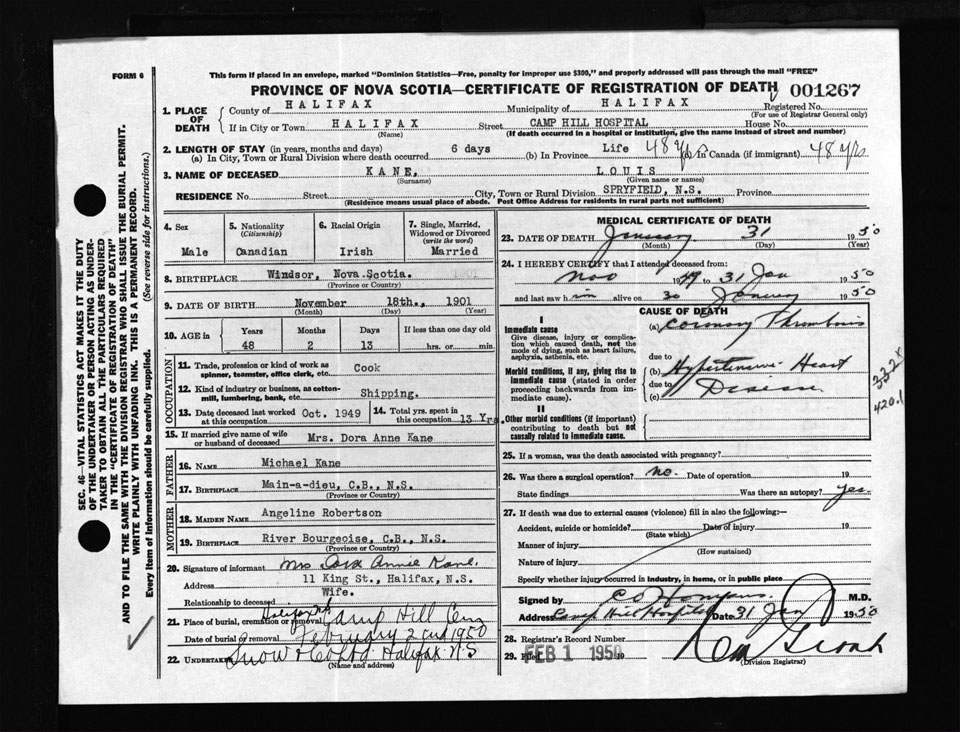 FORM 6
This form if placed in an envelope, marked "Dominion Statistics—Free, penalty for improper use $300," and properly addressed will pass through the mail "FREE"
PROVINCE OF NOVA SCOTIA—CERTIFICATE OF REGISTRATION OF DEATH 001267
1. PLACE OF DEATH
County of HALIFAX Municipality of HALIFAX Registered No.
(For use of Registrar General only)
If in City or Town HALIFAX Street CAMP HILL HOSPITAL House No.
(Name) (If death occurred in a hospital or institution, give the name instead of street and number)
2. LENGTH OF STAY (in years, months and days)
(a) In City, Town or Rural Division where death occurred 6 days (b) In Province Life 48 yrs (c) In Canada (if immigrant) 48 yrs
3. NAME OF DECEASED KANE, LOUIS
(Surname) (Given name or names)
RESIDENCE No. Street City, Town or Rural Division SPRYFIELD, N.S. Province
(Residence means usual place of abode. Post Office Address for residents in rural parts not sufficient)
4. Sex
Male
5. Nationality
(Citizenship)
Canadian
6. Racial Origin
Irish
7. Single, Married, Widowed or Divorced
(write the word)
Married
8. BIRTHPLACE Windsor, Nova Scotia.
(Province or Country)
9. DATE OF BIRTH November 18th., 1901
(Month) (Day) (Year)
10. AGE in
Years Months Days If less than one day old
48 2 13 hrs. or min.
OCCUPATION
11. Trade, profession or kind of work as spinner, teamster, office clerk, etc. Cook
12. Kind of industry or business, as cotton-mill, lumbering, bank, etc. Shipping.
13. Date deceased last worked at this occupation Oct. 1949
14. Total yrs. spent in this occupation 13 Yrs.
15. If married give name of wife or husband of deceased Mrs. Dora Anne Kane
FATHER
16. NAME Michael Kane
17. BIRTHPLACE Main-a-dieu, C.B., N.S.
(Province or Country)
MOTHER
18. MAIDEN NAME Angeline Robertson
19. BIRTHPLACE River Bourgeoise, C.B., N.S.
(Province or Country)
20. Signature of informant Mrs Dora Annie Kane.
Address 11 King St., Halifax, N.S.
Relationship to deceased Wife.
21. Place of burial, cremation or removal Halifax Camp Hill Cem
Date of burial or removal February 2 1950
22. Undertaker Snow & Co Ltd Halifax N.S
(Name and address)
MEDICAL CERTIFICATE OF DEATH
23. DATE OF DEATH January 31 1950
(Month) (Day) (Year)
24. I HEREBY CERTIFY that I attended deceased from:
Nov 1949 to 31 Jan 1950
and last saw him alive on 30 January 1950
CAUSE OF DEATH
I
Immediate cause
Give disease, injury or complication which caused death, not the mode of dying, such as heart failure, asphyxia, asthenia, etc.
(a) Coronary Thrombosis
due to
Morbid conditions, if any, giving rise to immediate cause (stated in order proceeding backwards from immediate cause).
(b) Hypertensive Heart
due to
(c) Disease
332X
420.1
II
Other morbid conditions (if important) contributing to death but not causally related to immediate cause.
25. If a woman, was the death associated with pregnancy?
26. Was there a surgical operation? no. Date of operation 19
State findings Was there an autopsy? yes
27. If death was due to external causes (violence) fill in also the following:—
Accident, suicide or homicide? Date of injury 19
(State which)
Manner of injury
(How sustained)
Nature of injury
Specify whether injury occurred in industry, in home, or in public place
Signed by M.D.
Address Camp Hill Hospital Date 31 Jan 1950
28. Registrar's Record Number
29. Filed FEB 1 1950 19
(Division Registrar)
SEC. 46—VITAL STATISTICS ACT MAKES IT THE DUTY
OF THE UNDERTAKER OR PERSON ACTING AS UNDER-
TAKER TO OBTAIN ALL THE PARTICULARS REQUIRED
IN THE "CERTIFICATE OF REGISTRATION OF DEATH"
AND TO FILE THE SAME WITH THE DIVISION REGISTRAR WHO SHALL ISSUE THE BURIAL PERMIT.
WRITE PLAINLY WITH UNFADING INK. THIS IS A PERMANENT RECORD.
Every item of Information should be carefully supplied. (See reverse side for instructions.)